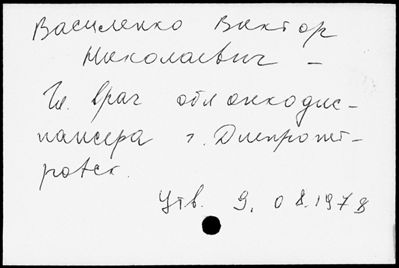 Василенко Виктор
Николаевич –
Гл. врач облонкодис-
пансера г. Днепропет-
ровск.
Утв. 9. 08.1978